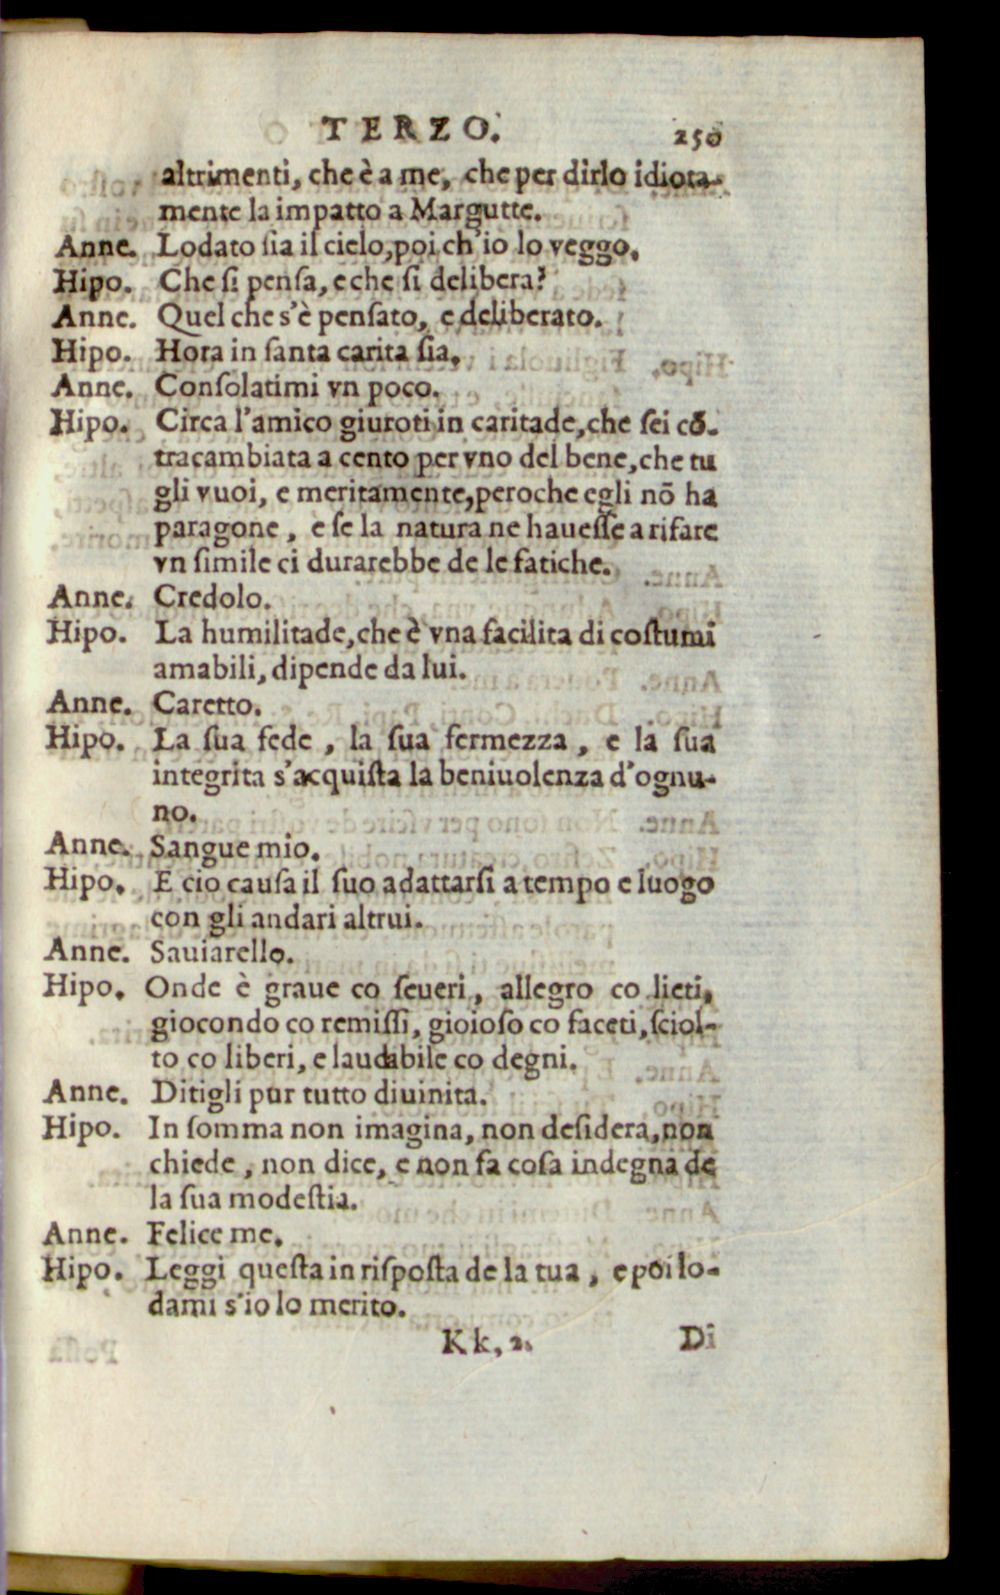 TERZO. 250
altrimenti, che è a me, che per dirlo idiota-
mente la impatto a Margutte.
Anne. Lodato ſia il cielo, poi ch'io lo veggo.
Hipo. Che ſi penſa, e che ſi delibera?
Anne. Quel che s'è penſato, e deliberato.
Hipo. Hora in ſanta carita ſia.
Anne. Conſolatimi vn poco.
Hipo. Circa l'amico giuroti in caritade, che ſei cõ-
tracambiata a cento per vno del bene, che tu
gli vuoi, e meritamente, peroche egli nō ha
paragone, e ſe la natura ne haueſſe a rifare
vn ſimile ci durarebbe de le fatiche.
Anne. Credolo.
Hipo. La humilitade, che è vna facilita di coſtumi
amabili, dipende da lui.
Anne. Caretto.
Hipo. La ſua fede, la ſua fermezza, e la ſua
integrita s'acquiſta la beniuolenza d'ognu-
no.
Anne. Sangue mio.
Hipo. E cio cauſa il ſuo adattarſi a tempo e luogo
con gli andari altrui.
Anne. Sauiarello.
Hipo. Onde è graue co ſeueri, allegro co lieti,
giocondo co remiſſi, gioioſo co faceti, ſciol-
to co liberi, e laudabile co degni.
Anne. Ditigli pur tutto diuinita.
Hipo. In ſomma non imagina, non deſidera, non
chiede, non dice, e non fa coſa indegna de
la ſua modeſtia.
Anne. Felice me.
Hipo. Leggi queſta in riſpoſta de la tua, e poi lo-
dami s'io lo merito.
Kk, 2. Di